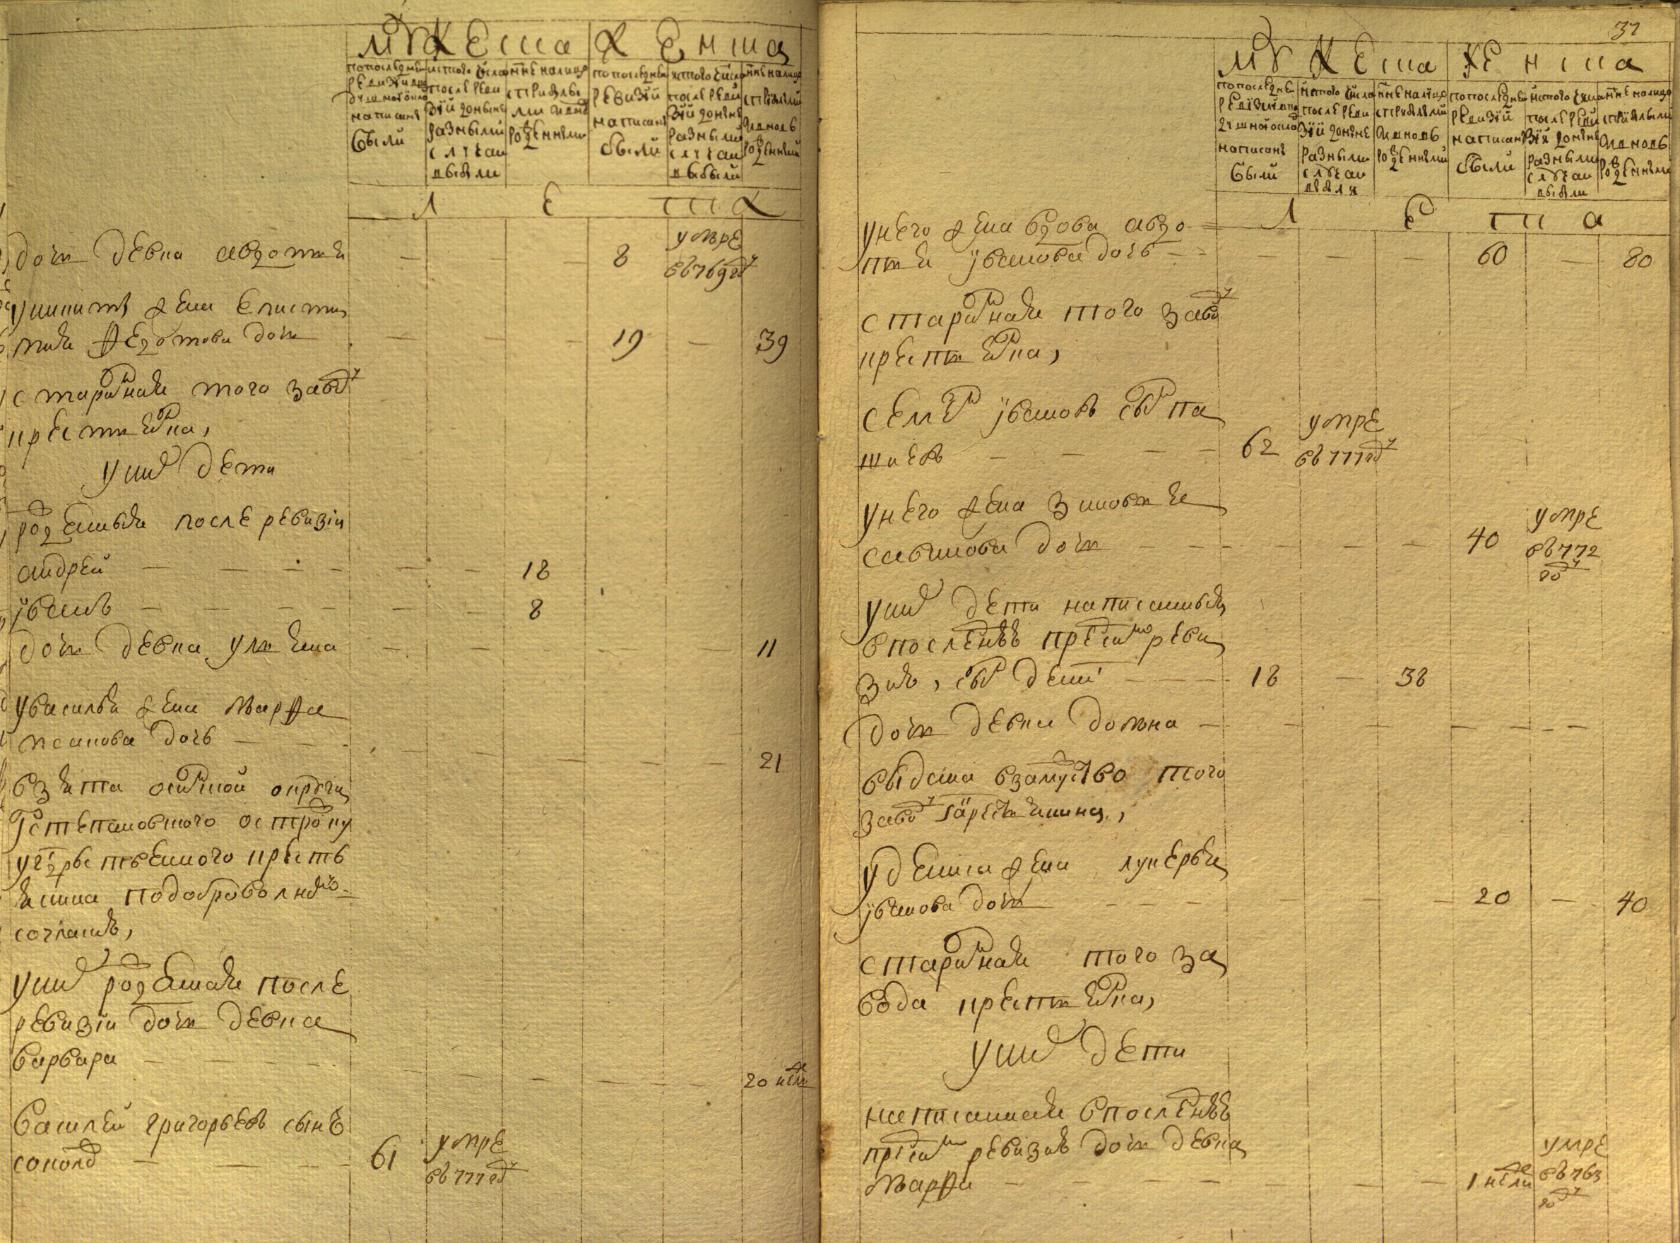 мужеска женска
по последней ревизии душ мой опло написано были
ис того числа после ревизии до ныне разными случаи выбыли
ныне на лицо с прибылыми и вновь рожденными
по последней ревизии написано были
ис того числа после ревизии до ныне разными случаи выбыли
ныне на лицо с прибылыми и вновь рожденными
л е та
дочь девка авдотья — — — 8 умре въ 769 году
у никиты жена
федотова дочь — — — 19 — 39
старинная того заводу
крестьянка,
у них дети
рожденныя после ревизии
андрей — — — 18
иванъ — — — 8
дочь девка ульяна — — — 11
у василья жена марфа
дочь — — — 21
взята осинской округи
остро
крестья
нина по добровольному
согласию,
у них рожденная после
ревизии дочь девка
варвара — — — 20 нѣли
василей григорьевъ сынъ
соколов — — 61 умре въ 777 году
37
мужеска женска
по последней ревизии душ мой опло написано были
ис того числа после ревизии до ныне разными случаи выбыли
ныне на лицо с прибылыми и вновь рожденными
по последней ревизии написано были
ис того числа после ревизии до ныне разными случаи выбыли
ныне на лицо с прибылыми и вновь рожденными
л е та
у него жена вдова авдо
тья иванова дочь — — 60 — 80
старинная того заводу
крестьянка,
иванов сын па
— — — 62 умре въ 777 году
у него жена зиновья
савинова дочь — — — 40 умре въ 772 году
у них дети написанныя
в последней пред сим реви
зии, сын денис — — 18 — 38
дочь девка домна — — —
выдана в замужство того
заводу крестьянина,
у дениса жена лукерья
иванова дочь — — — 20 — 40
старинная того за
вода крестьянка,
у них дети
написанная в последней
пред сим ревизии дочь девка
марфа — — — 1 нѣли умре въ 763 году